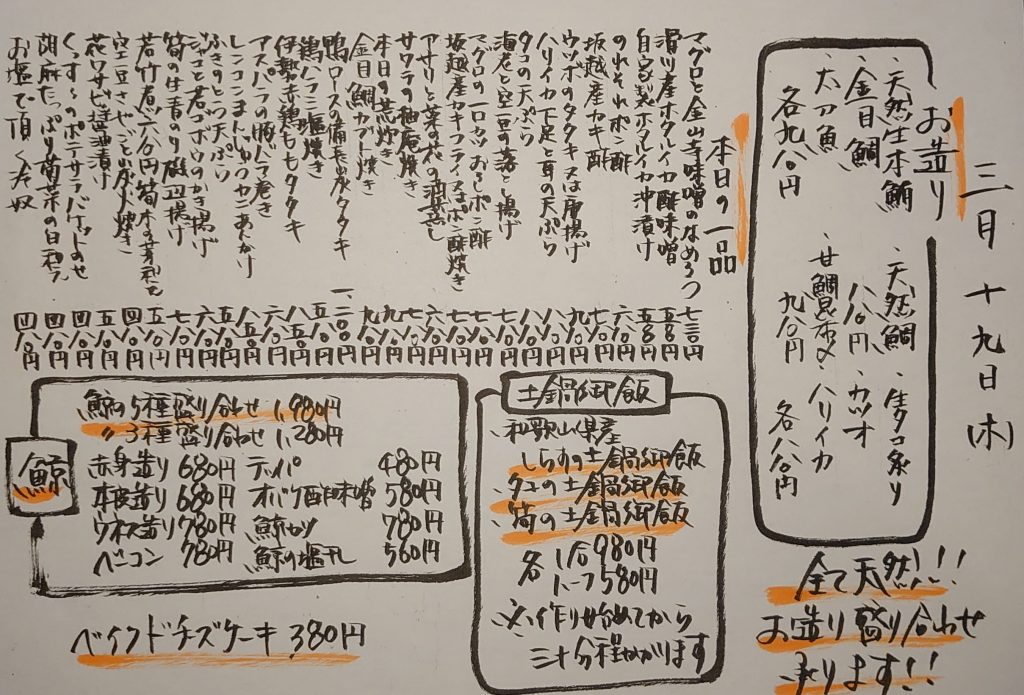 三月十九日(木)
お造り
・天然生本鮪 ・天然鯛 ・生タコ炙り
・金目鯛 八八〇円 ・カツオ
・太刀魚 ・甘鯛昆布〆 ・ハリイカ
各九八〇円 九八〇円 各八八〇円
全て天然!!
お造り盛り合わせ
承ります!!
本日の一品
マグロと金山寺味噌のなめろう 七三〇円
滑川産ホタルイカ酢味噌 五八〇円
自家製ホタルイカ沖漬け 五八〇円
のれそれポン酢
坂越産カキ酢
ウツボのタタキ又は唐揚げ
ハリイカ下足と耳の天ぷら
タコの天ぷら
海老と空豆の落とし揚げ
マグロの一口カツおろしポン酢
坂越産カキフライ又はポン酢焼き
アサリと菜の花の酒蒸し
サワラの柚庵焼き
本日の荒炊き
金目鯛カブト焼き
鴨ロースの備長炭タタキ
鶏ハラミ塩焼き
伊勢赤鶏ももタタキ
アスパラの豚バラ巻き
レンコンまんじゅうカニあんかけ
ふきのとう天ぷら
ジャコと若ゴボウのかき揚げ
筍の生青のり磯辺揚げ
若竹煮 六八〇円 筍木の芽和え
空豆さやごと炭火焼き
花ワサビ醤油漬け
くっさ〜のポテサラバケットのせ
胡麻たっぷり菊菜の白和え
お塩で頂く冷奴
土鍋御飯
・和歌山県産
しらすの土鍋御飯
・タコの土鍋御飯
・筍の土鍋御飯
各 1合980円
ハーフ580円
※作り始めてから
三十分程かかります
鯨
鯨の5種盛り合わせ 1,980円
〃3種盛り合わせ 1,280円
赤身造り 680円 テッパ 480円
本皮造り 680円 オバケ酢味噌 580円
ウネス造り 780円 鯨カツ 780円
ベーコン 780円 鯨の塩干し 560円
ベイクドチーズケーキ 380円